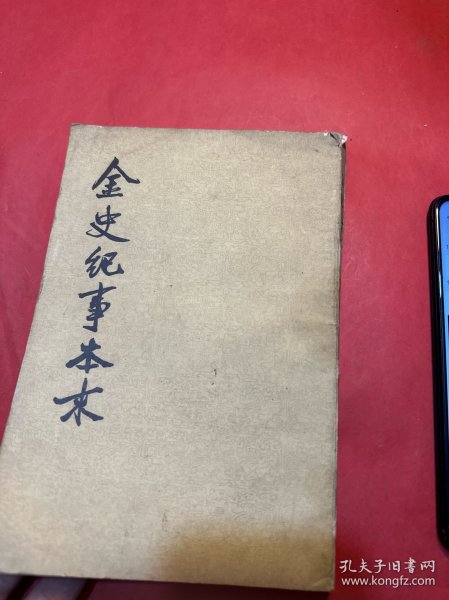 金史纪事本末
孔夫子旧书网
www.kongfz.com